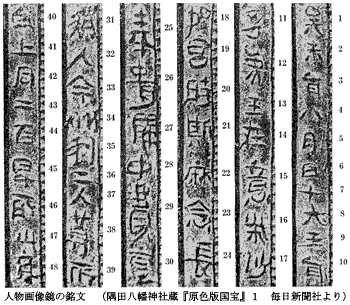 癸未年八月日十大王年
1 2 3 4 5 6 7 8 9 10
男弟王在意柴沙
11 12 13 14 15 16 17
加宮時斯麻念長
18 19 20 21 22 23 24
寿遣開中費直
25 26 27 28 29 30
穢人今州利二人等取
31 32 33 34 35 36 37 38 39
白上同二百旱作此竟
40 41 42 43 44 45 46 47 48
人物画像鏡の銘文　（隅田八幡神社蔵『原色版国宝』１　毎日新聞社より）